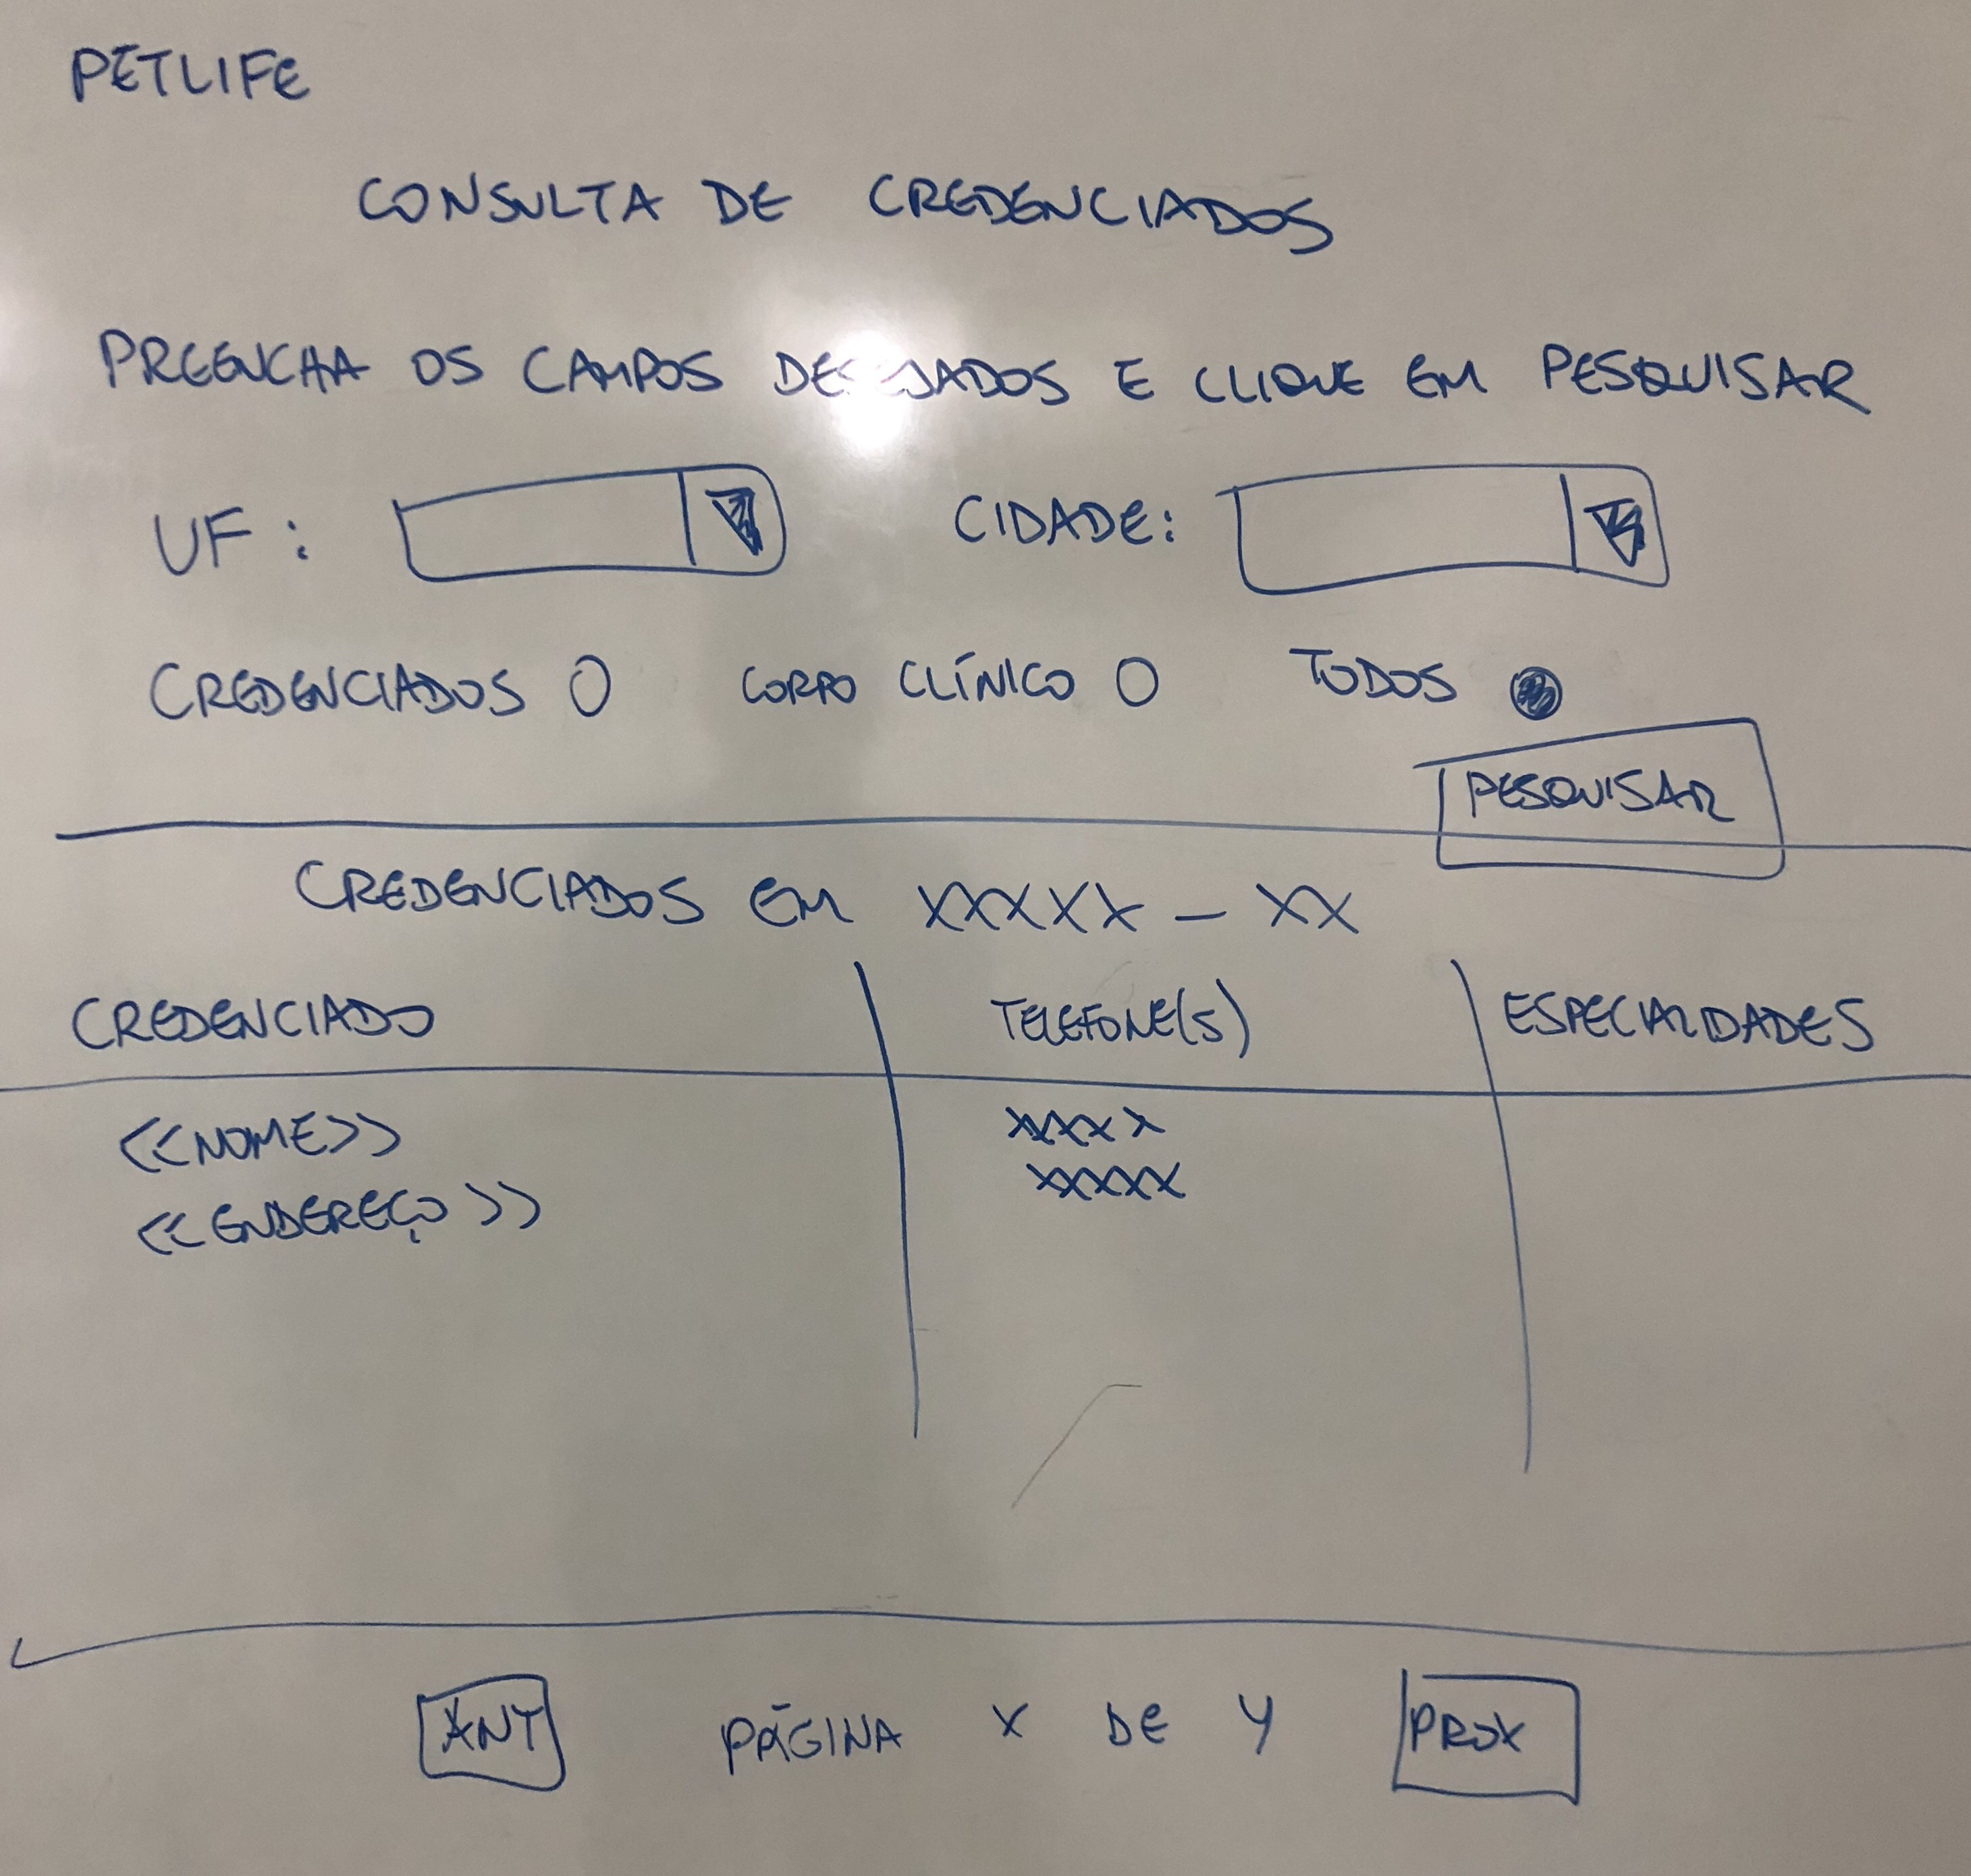 PETLIFE
CONSULTA DE CREDENCIADOS
PREENCHA OS CAMPOS DESEJADOS E CLIQUE EM PESQUISAR
UF: CIDADE:
CREDENCIADOS CORPO CLÍNICO TODOS
PESQUISAR
CREDENCIADOS EM XXXXX - XX
CREDENCIADO TELEFONE(S) ESPECIALIDADES
<<NOME>> XXXXX
<<ENDEREÇO>> XXXXX
ANT PÁGINA X DE Y PROX